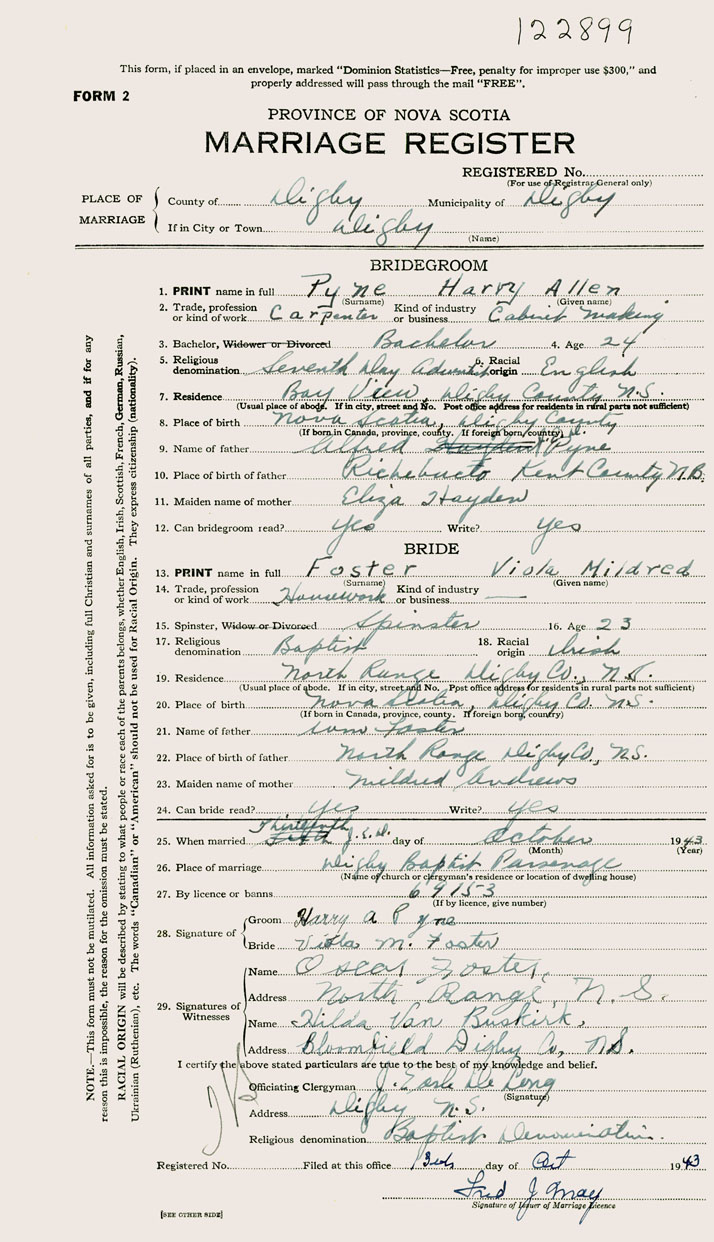 122899
This form, if placed in an envelope, marked "Dominion Statistics—Free, penalty for improper use $300," and
properly addressed will pass through the mail "FREE".
FORM 2
PROVINCE OF NOVA SCOTIA
MARRIAGE REGISTER
REGISTERED No.
(For use of Registrar General only)
PLACE OF MARRIAGE
County of Digby Municipality of Digby
If in City or Town Digby
(Name)
BRIDEGROOM
1. PRINT name in full Pyne Harry Allen
(Surname) (Given name)
2. Trade, profession or kind of work Carpenter Kind of industry or business Cabinet making
3. Bachelor, Widower or Divorced Bachelor 4. Age 24
5. Religious denomination Seventh Day Adventist 6. Racial origin English
7. Residence Bay View, Digby County N.S.
(Usual place of abode. If in city, street and No. Post office address for residents in rural parts not sufficient)
8. Place of birth Nova Scotia, Digby County
(If born in Canada, province, county. If foreign born, country)
9. Name of father Alfred Pyne
10. Place of birth of father Richebucto Kent County N.B.
11. Maiden name of mother Eliza Hayden
12. Can bridegroom read? yes Write? yes
BRIDE
13. PRINT name in full Foster Viola Mildred
(Surname) (Given name)
14. Trade, profession or kind of work Housework Kind of industry or business —
15. Spinster, Widow or Divorced Spinster 16. Age 23
17. Religious denomination Baptist 18. Racial origin Irish
19. Residence North Range Digby Co., N.S.
(Usual place of abode. If in city, street and No. Post office address for residents in rural parts not sufficient)
20. Place of birth Nova Scotia, Digby Co. N.S.
(If born in Canada, province, county. If foreign born, country)
21. Name of father Foster
22. Place of birth of father North Range Digby Co., N.S.
23. Maiden name of mother Mildred Andrews
24. Can bride read? yes Write? yes
Thirteenth
25. When married Fifth J.E.D. day of October 1943
(Month) (Year)
26. Place of marriage Digby Baptist Parsonage
(Name of church or clergyman's residence or location of dwelling house)
27. By licence or banns 69153
(If by licence, give number)
28. Signature of
Groom Harry A Pyne
Bride Viola M. Foster
29. Signatures of Witnesses
Name Oscar Foster,
Address North Range, N.S.
Name Hilda Van Buskirk,
Address Bloomfield Digby Co, N.S.
I certify the above stated particulars are true to the best of my knowledge and belief.
Officiating Clergyman J. Earle De Long
(Signature)
Address Digby N.S.
Religious denomination Baptist Denomination.
Registered No. Filed at this office day of Oct 1943
Fred J
Signature of Issuer of Marriage Licence
[SEE OTHER SIDE]
NOTE.—This form must not be mutilated. All information asked for is to be given, including full Christian and surnames of all parties, and if for any
reason this is impossible, the reason for the omission must be stated.
RACIAL ORIGIN will be described by stating to what people or race each of the parents belongs, whether English, Irish, Scottish, French, German, Russian,
Ukrainian (Ruthenian), etc. The words "Canadian" or "American" should not be used for Racial Origin. They express citizenship (nationality).